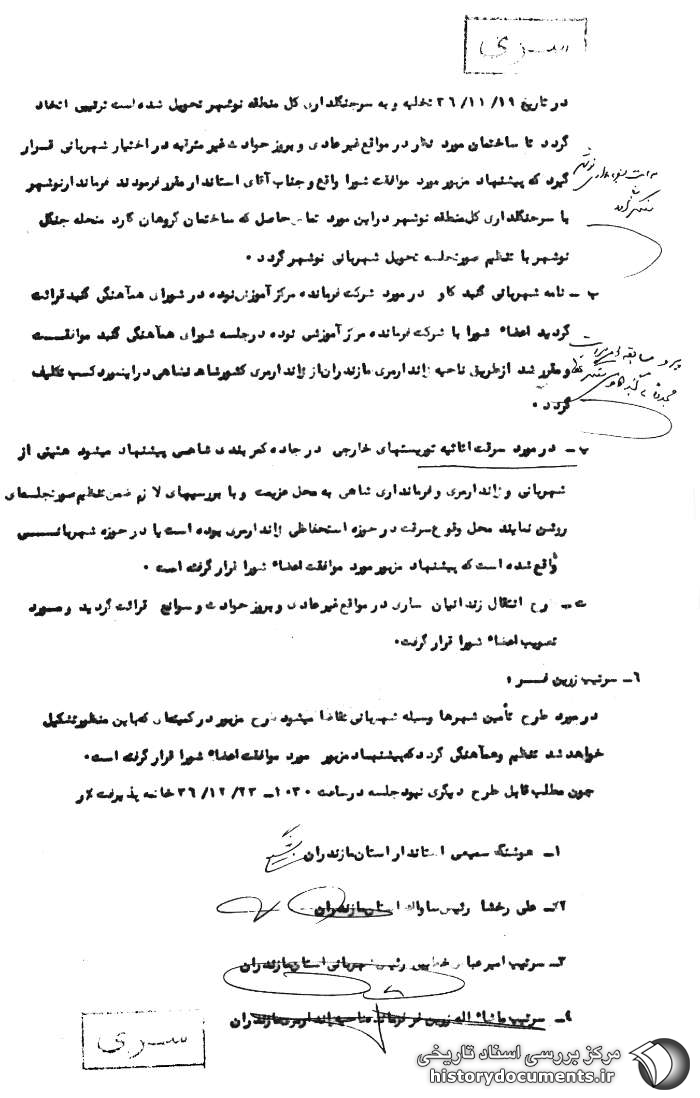 سری
در تاریخ ۱۹/ ۱۱/ ۳۶ تخلیه و به سرجنگلداری کل منطقه نوشهر تحویل شده است ترتیبی اتخاذ
گردد تا ساختمان مورد نظر در مواقع غیر عادی و بروز حوادث غیر مترقبه در اختیار شهربانی قرار
گیرد که پیشنهاد مزبور مورد موافقت شورا واقع و جناب آقای استاندار مقرر فرمودند فرماندار نوشهر
با سرجنگلداری کل منطقه نوشهر در این مورد تماس حاصل که ساختمان گروهان گارد منحله جنگل
نوشهر با تنظیم صورتجلسه تحویل شهربانی نوشهر گردد .
ب - نامه شهربانی گنبد کاو در مورد شرکت فرمانده مرکز آموزش نوده در شورای هم آهنگی گنبد قرائت
گردید اعضاء شورا با شرکت فرمانده مرکز آموزش نوده در جلسه شورای هم آهنگی گنبد موافقت
و مقرر شد از طریق ناحیه ژاندارمری مازندران از ژاندارمری کشور شاهنشاهی در اینمورد کسب تکلیف
گردد .
پ - در مورد سرقت اثاثیه توریستهای خارجی در جاده کمربندی شاهی پیشنهاد میشود هیئتی از
شهربانی و ژاندارمری و فرمانداری شاهی به محل عزیمت و با بررسیهای لازم ضمن تنظیم صورتجلسه‌ای
روشن نمایند محل وقوع سرقت در حوزه استحفاظی ژاندارمری بوده است یا در حوزه شهربانی
واقع شده است که پیشنهاد مزبور مورد موافقت اعضاء شورا قرار گرفته است .
ت - طرح انتقال زندانیان ساری در مواقع غیر عادی و بروز حوادث و سوانح قرائت گردید و مورد
تصویب اعضاء شورا قرار گرفت.
۶ - سرتیپ زرین فر :
در مورد طرح تأمین شهرها وسیله شهربانی تقاضا میشود طرح مزبور در کمیته‌ای که باین منظور تشکیل
خواهد شد تنظیم و هم آهنگی گردد که پیشنهاد مزبور مورد موافقت اعضاء شورا قرار گرفته است.
چون مطلب قابل طرح دیگری نبود جلسه در ساعت ۱۰۳۰ - ۲۳/ ۱۲/ ۳۶ خاتمه پذیرفت
۱ - هوشنگ سمیعی استاندار استان مازندران
۲ - علی رخشا رئیس ساواك استان مازندران
۳ - سرتیپ امیر رئیس شهربانی استان مازندران
۴ - سرتیپ ماشاء اله زرین فر فرمانده ناحیه ژاندارمری مازندران
سری
مرکز بررسی اسناد تاریخی
historydocuments.ir